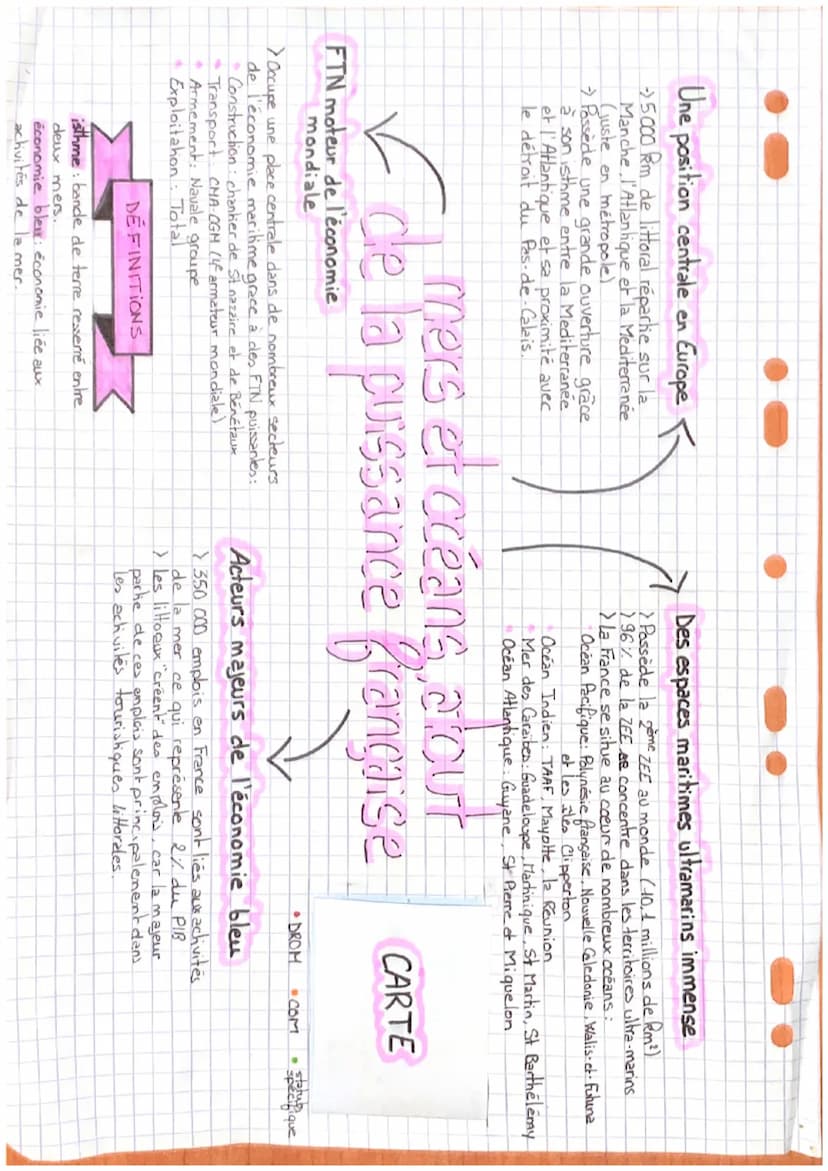 mers et océans, atout
de la puissance française
Une position centrale en Europe
→ 5 000 km de littoral répartie sur la
Manche, l'Atlantique et la Mediterranée
(juste en métropole)
→ Possède une grande ouverture grâce
à son isthme entre la Mediterranée
et l'Atlantique et sa proximité avec
le détroit du Pas-de-Calais.
Des espaces maritimes ultramarins immense
> Possède la 2ème ZEE au monde (10,1 millions de km²)
> 96% de la ZEE concentre dans les territoires ultra-marins
> La France se situe au cœur de nombreux océans :
• Océan Pacifique: Polynésie française, Nouvelle Caledonie, Walis-et-Futuna
et les îles Clipperton
• Océan Indien : TAAF, Mayotte, la Réunion
• Mer des Caraïbes: Guadeloupe, Martinique, St Martin, St Barthélémy
• Océan Atlantique : Guyane, St Pierre et Miquelon
FTN moteur de l'économie
mondiale
> Occupe une place centrale dans de nombreux secteurs
de l'économie maritime grace à des FTN puissantes :
• Construction : chantier de St nazaire et de Bénétaux
• Transport CMA-CGM (4e armateur mondiale)
• Armement : Navale groupe
• Exploitation : Total
DÉFINITIONS
isthme : bande de terre resserré entre
deux mers.
économie bleu : économie liée aux
activités de la mer.
Acteurs majeurs de l'économie bleu
> 350 000 emplois en France sont liés aux activités
de la mer ce qui représente 2% du PIB
> Les littoaux "créent des emplois, car la majeur
partie de ces emplois sont principalement dans
les activités touristiques littorales.
CARTE
• DROM • COM • statut
spécifique